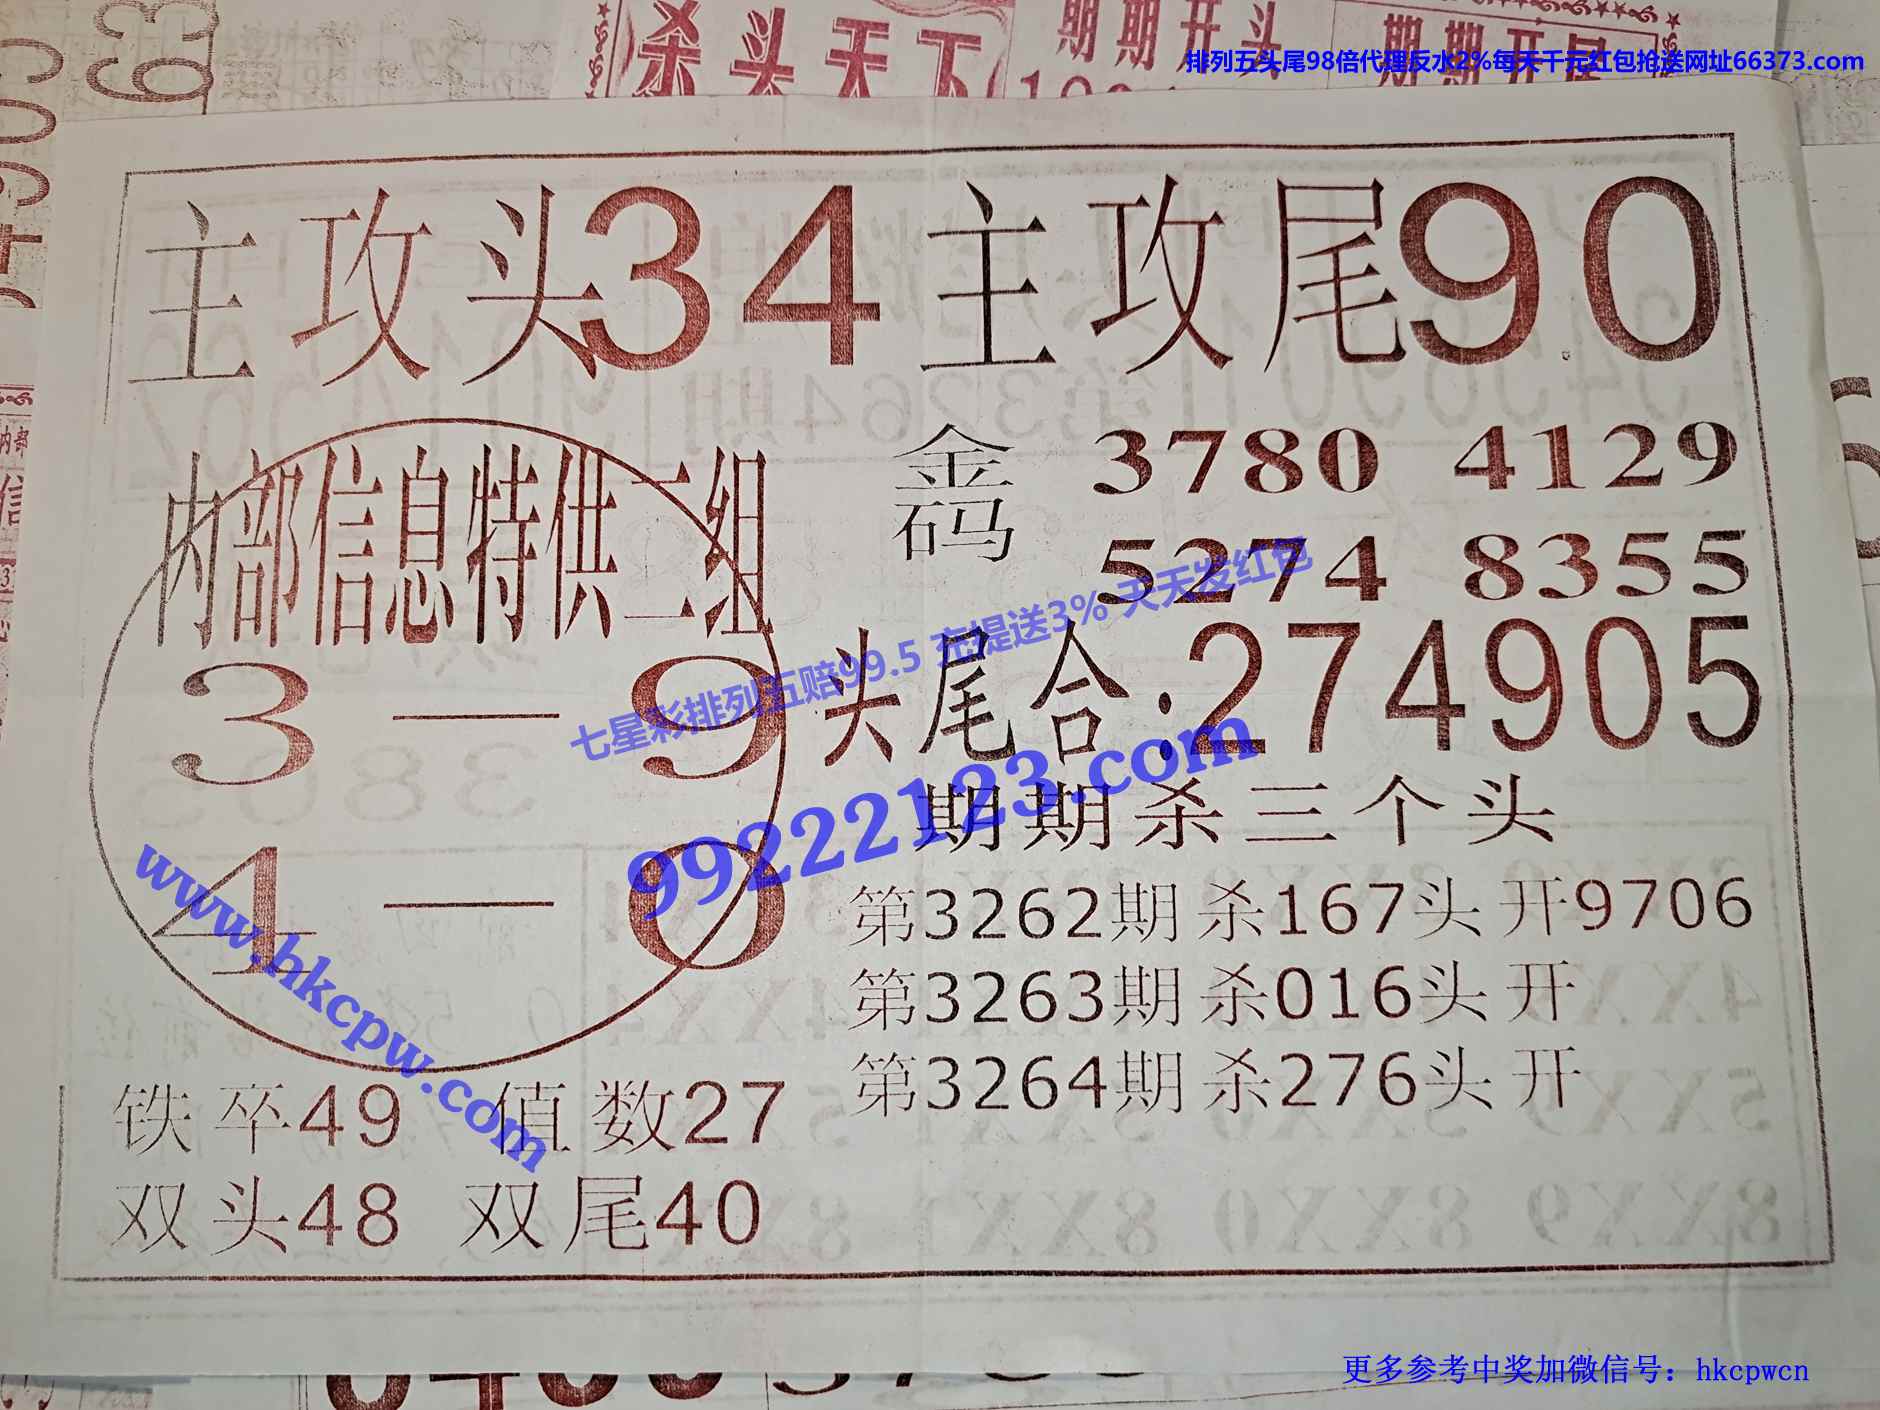 杀头天下
期期开头
期期开尾
排列五头尾98倍代理反水2%每天千元红包抢送网址66373.com
主攻头34 主攻尾90
内部信息特供二组
3—9
4—0
金码 3780 4129
5274 8355
七星彩排列五赔99.5 充提送3% 天天发红包
头尾合:274905
99222123.com
期期杀三个头
www.hkcpw.com
第3262期杀167头开9706
第3263期杀016头开
第3264期杀276头开
铁卒49 值数27
双头48 双尾40
更多参考中奖加微信号：hkcpwcn